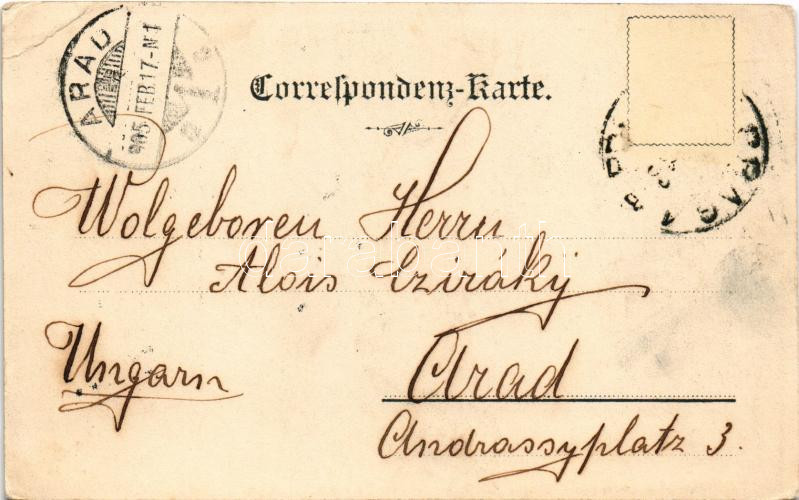 ARAD
905 FEB 17-N1
Correspondenz-Karte.
PRAG
Wolgeboren Herrn
Alois Cziráky
Ungarn
Arad
Andrassyplatz 3.